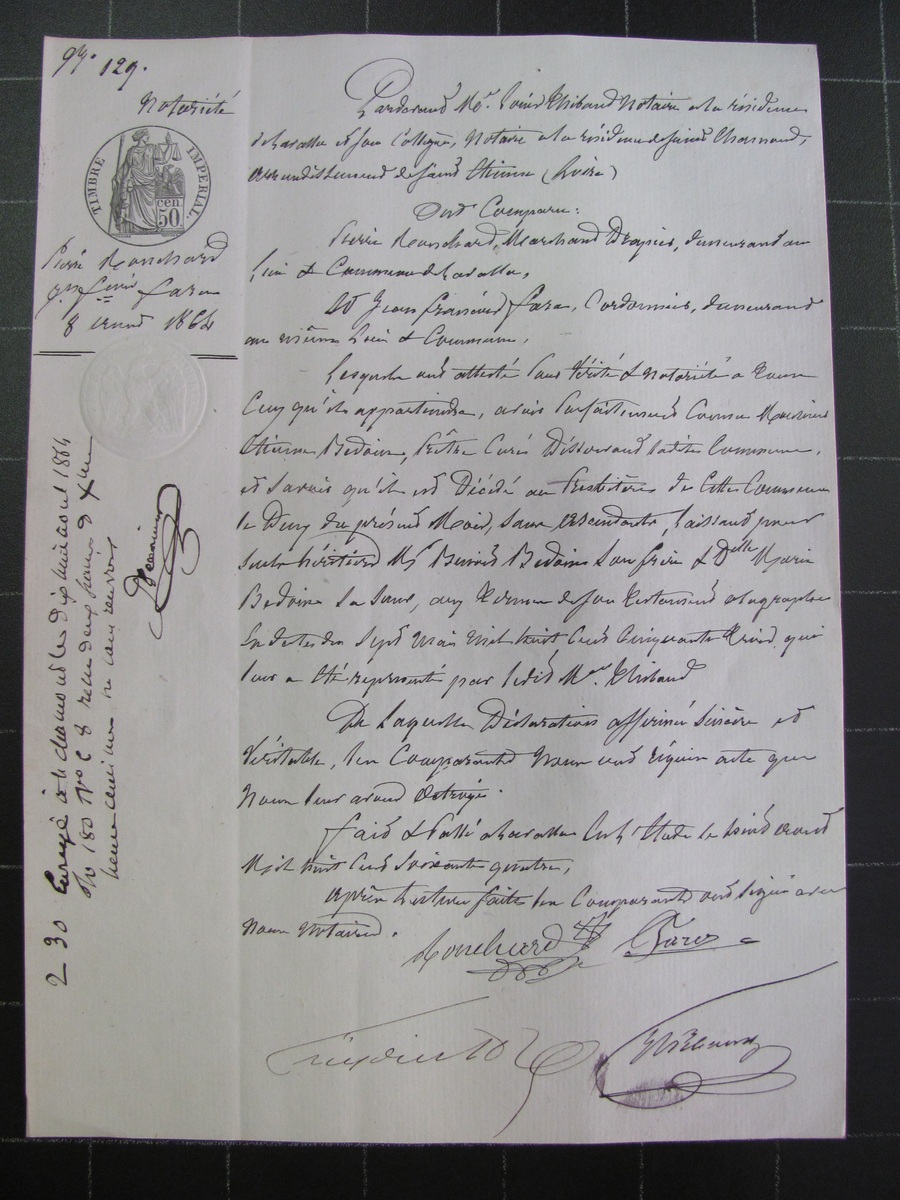 N° 129.
Notoriété
TIMBRE IMPÉRIAL.
cen. 50
Pierre Rouchard
Fara
8 1864
Pardevant Mtre Louis Thibaud Notaire à la résidence
de Lavalla et son Collègue, Notaire à la résidence de Saint Chamond,
arrondissement de Saint Etienne (Loire)
Ont Comparu :
Pierre Rouchard, Marchand Drapier, demeurant au
lieu & Commune de Lavalla,
Et Jean François Fara, Cordonnier, demeurant
au même Lieu & Commune,
Lesquels ont attesté pour Vérité & Notoriété à tous
Ceux qu'il appartiendra, avoir parfaitement Connu Monsieur
Etienne Bedoin, Prêtre Curé Desservant ladite Commune,
et Savoir qu'il est Décédé au Presbitère de Cette Commune
le Deux du présent Mois, sans ascendants, laissant pour
seuls héritiers Mr Benoit Bedoin Son frère & Delle Marie
Bedoin Sa Sœur, aux termes de son testament olographe
En date du Sept Mai Mil huit Cent Cinquante trois, qui
leur a été représenté par ledit Mtre Thibaud
De Laquelle Déclaration affirmée Sincère et
Véritable, les Comparants Nous ont requis acte que
Nous leur avons Octroyé.
Fait & Passé à Lavalla En l'Etude le huit août
Mil huit Cent Soixante quatre,
après lecture faite les Comparants ont signé avec
Nous Notaires.
Rouchard Fara
Thibaud
2 30 Enregé à St chamond les dix huit aout 1864
fo 180 Vo C 8 reçu deux francs &